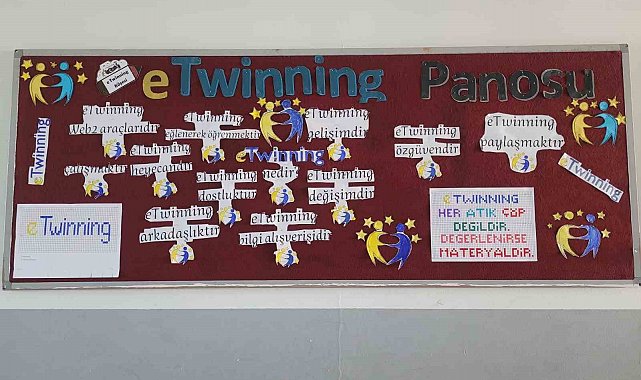 eTwinning Panosu
eTwinning
Köşesi
eTwinning
Web2 araçlarıdır
eTwinning
eğlenerek öğrenmektir
eTwinning
gelişimdir
eTwinning
özgüvendir
eTwinning
paylaşmaktır
eTwinning
çalışmaktır
eTwinning
heyecandır
eTwinning
nedir?
dostluktur
eTwinning
değişimdir
eTwinning
eTwinning
arkadaşlıktır
eTwinning
bilgi alışverişidir
eTwinning
eTWINNING
HER ATIK ÇÖP
DEĞİLDİR.
DEĞERLENİRSE
MATERYALDİR.